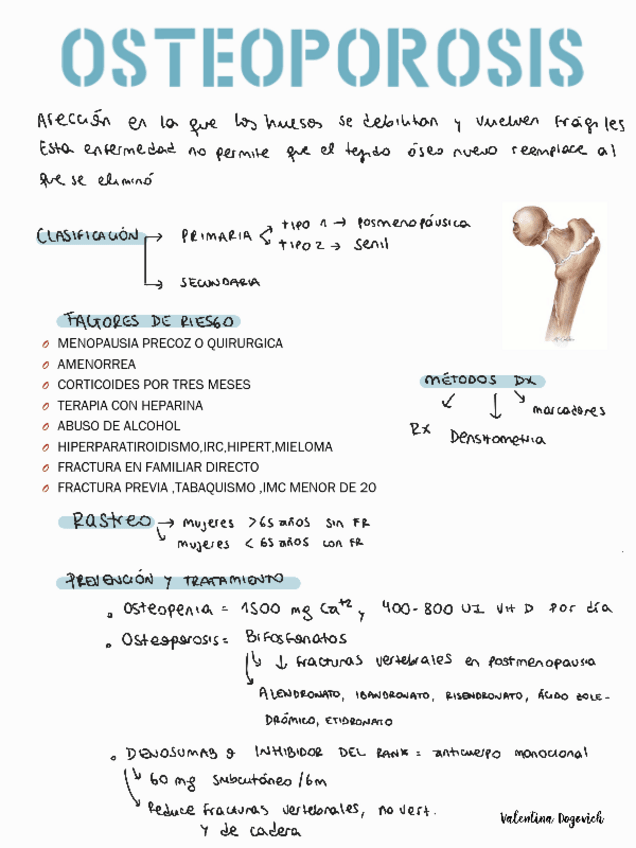 OSTEOPOROSIS
Afección en la que los huesos se debilitan y vuelven frágiles
Esta enfermedad no permite que el tejido óseo nuevo reemplace al
que se eliminó
CLASIFICACIÓN → PRIMARIA < tipo 1 → Posmenopáusica
tipo 2 → Senil
→ SECUNDARIA
FACTORES DE RIESGO
MENOPAUSIA PRECOZ O QUIRURGICA
AMENORREA
CORTICOIDES POR TRES MESES
TERAPIA CON HEPARINA
ABUSO DE ALCOHOL
HIPERPARATIROIDISMO,IRC,HIPERT,MIELOMA
FRACTURA EN FAMILIAR DIRECTO
FRACTURA PREVIA ,TABAQUISMO ,IMC MENOR DE 20
MÉTODOS DX
marcadores
RX
Densitometria
Rastreo → mujeres >65 años sin FR
mujeres < 65 años con FR
PREVENCIÓN Y TRATAMIENTO
• Osteopenia = 1500 mg Ca+2 y 400-800 UI Vit D por día
• Osteoporosis = Bifosfonatos
↓ fracturas vertebrales en postmenopausia
ALENDRONATO, IBANDRONATO, RISENDRONATO, ÁCIDO ZOLE-
DRÓMICO, ETIDRONATO
• DENOSUMAB → INHIBIDOR DEL RANK = anticuerpo monoclonal
60 mg subcutáneo /6m
Reduce fracturas vertebrales, no vert.
y de cadera
Valentina Dogevich